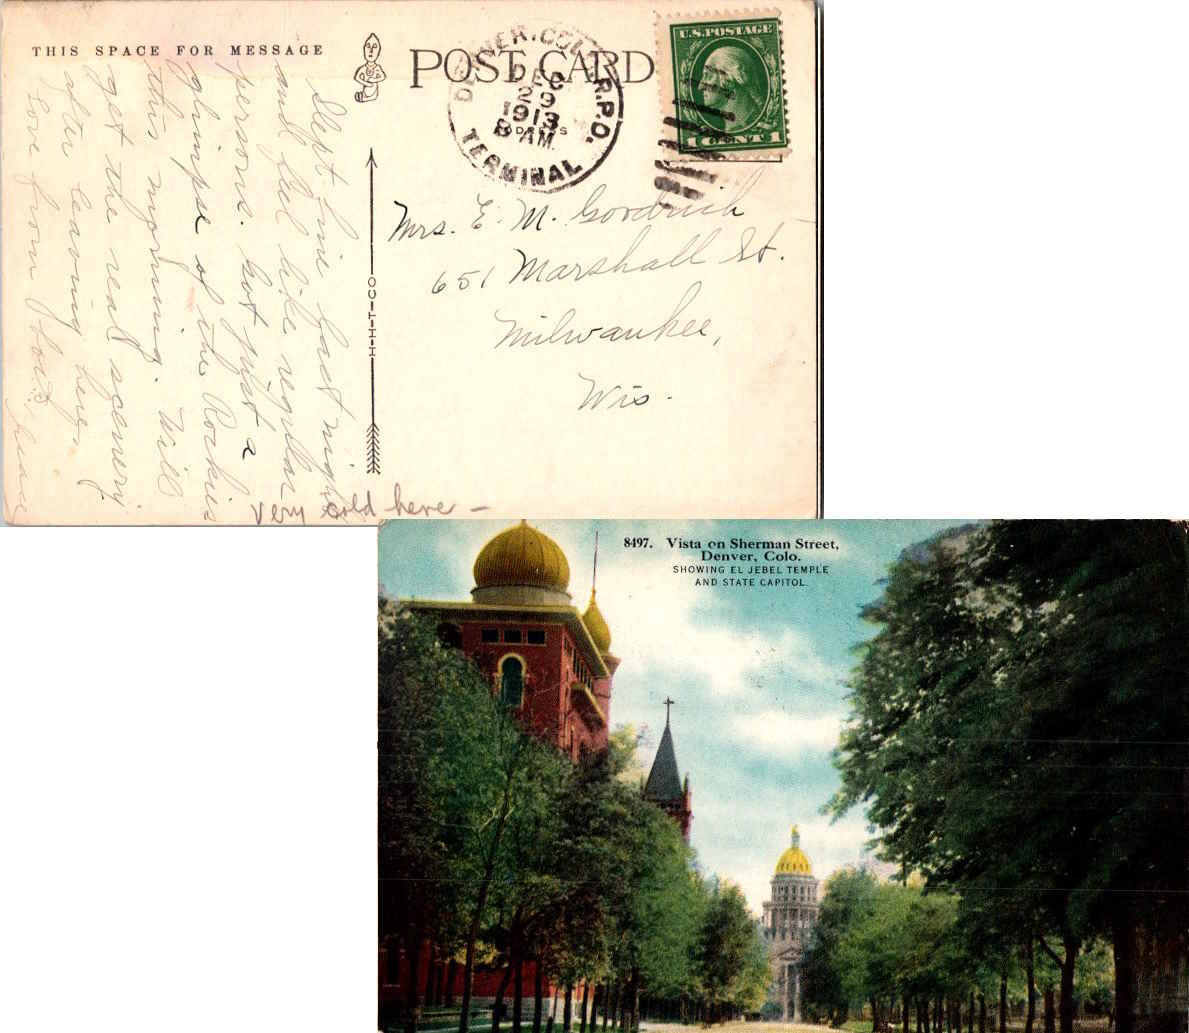 THIS SPACE FOR MESSAGE
POST CARD
DENVER, COLO. R.P.O.
DEC
29
1913
8 AM
TERMINAL
U.S. POSTAGE
1 CENT 1
Slept fine last night
and feel like regular
persons. Got just a
glimpse of the Rockies
this morning. Will
get the real scenery
after leaving here.
Love from
very cold here –
H-H-T-CO
Mrs. E. M. Goodrich
651 Marshall St.
Milwaukee,
Wis.
8497. Vista on Sherman Street,
Denver, Colo.
SHOWING EL JEBEL TEMPLE
AND STATE CAPITOL.